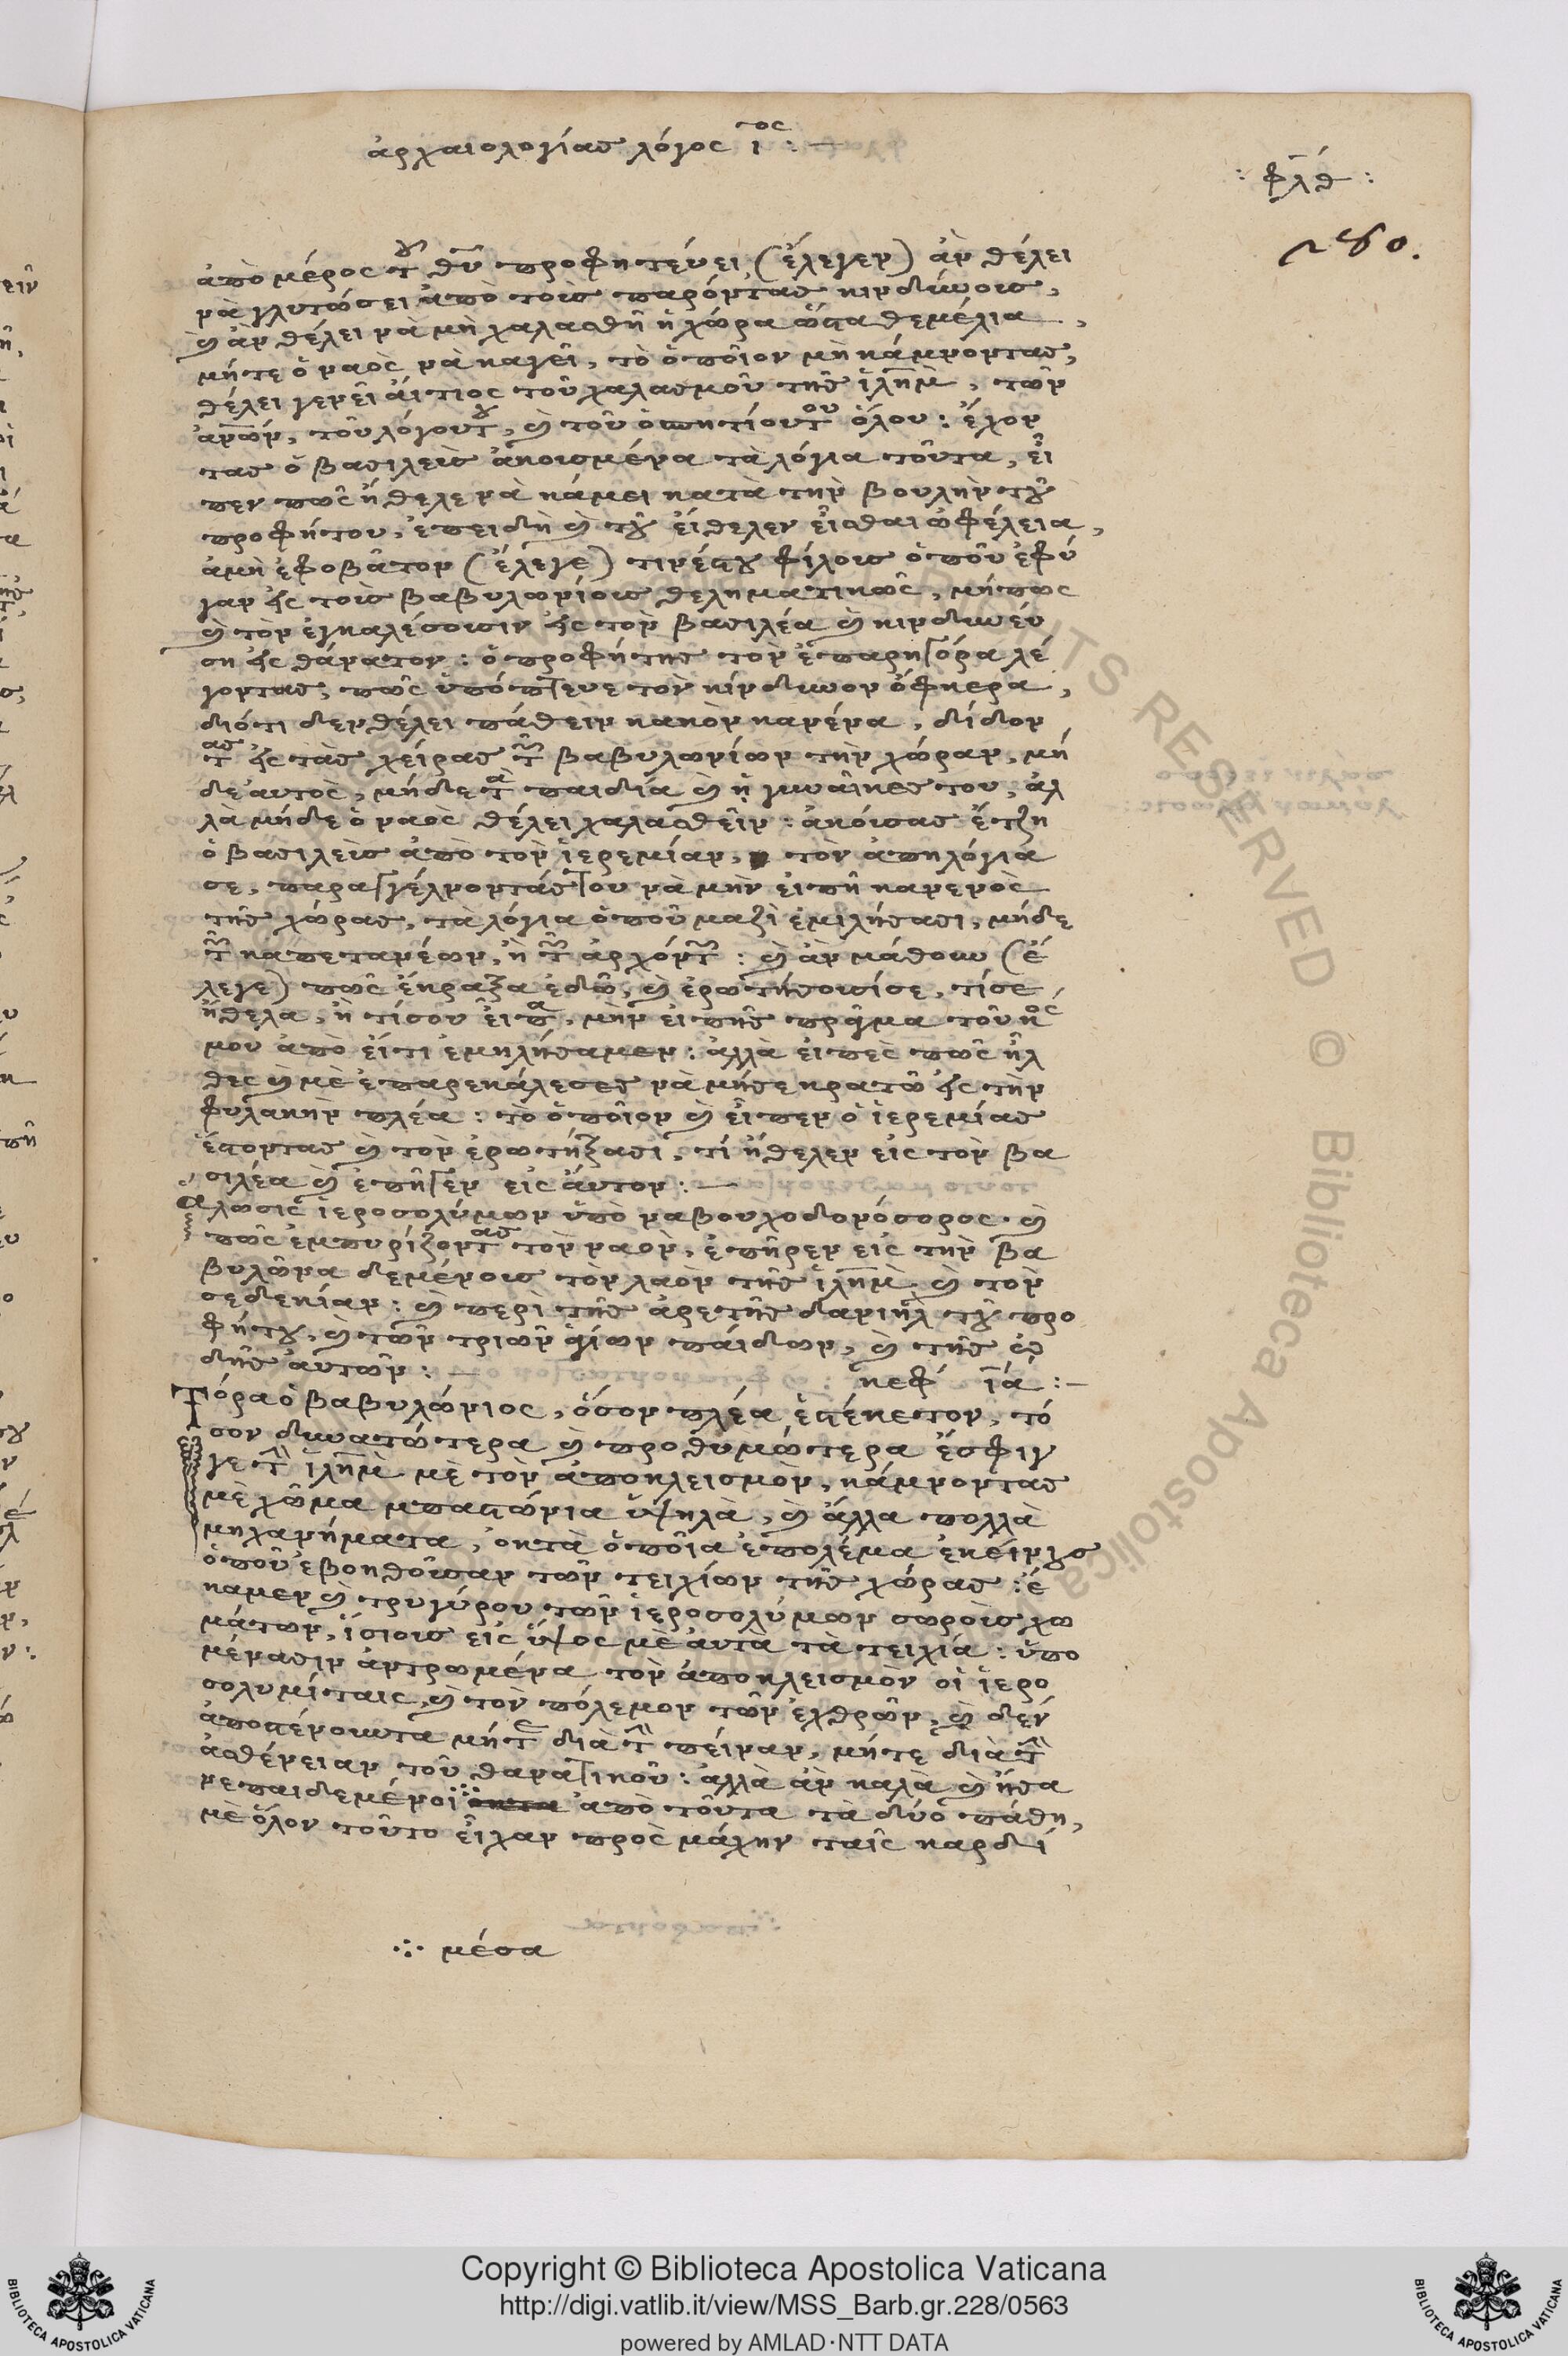 ἀρχαιολογίας λόγος ι^ος : —
: φλθ :
280.
ἀπὸ μέρος τ^ου θυ προφητεύει (ἔλεγεν) ἂν θέλει
νὰ γλυτώσει ἀπὸ τοὺς παρόντας κινδύνους,
καὶ ἂν θέλει νὰ μὴ χαλασθῆ ἡ χώρα ὥστα θεμέλια,
μήτε ὁ ναὸς νὰ καγεῖ, τὸ ὁποῖον μὴ κάμνοντας,
θέλει γενεῖ αἴτιος τοῦ χαλασμοῦ τῆς ἱλημ, τῶν
ἀνων, τοῦ λόγου τ^ου, καὶ τοῦ ὁσπητίου τ^ου ὅλου : ἔχον
τας ὁ βασιλεὺς ἀκουσμένα τὰ λόγια τοῦτα, εἶ
πεν πῶς ἤθελε νὰ κάμει κατὰ τὴν βουλὴν τοῦ
προφήτου, ἐπειδὴ καὶ τοῦ εἴθελεν εἶσθαι ὠφέλεια,
ἀμὴ ἐφοβᾶτον (ἔλεγε) τινέστου φίλους ὁποῦ ἐφύ
γαν εἰς τοὺς βαβυλωνίους θεληματικῶς, μήπως
καὶ τὸν ἐγκαλέσουσιν εἰς τὸν βασιλέα καὶ κινδυνεύ
ση εἰς θάνατον : ὁ προφήτης τὸν ἐπαρηγόρα λέ
γοντας, πῶς ὑπόπτευε τὸν κίνδυνον εὔκερα,
διότι δεν θέλει πάθειν κακὸν κανένα, δίδον
τ^ας εἰς τὰς χείρας τῶν βαβυλωνίων τὴν χώραν, μή
δε αυτὸς, μήδε τ^α παιδιά καὶ ἡ γυναῖκες του, ἀλ
λὰ μήδε ὁ ναὸς θέλει χαλασθεῖν : ἀκούσας ἔτζη
ὁ βασιλεὺς ἀπὸ τὸν ἱερεμίαν, τὸν ἀπηλόγια
σε, παραγγέλνοντάς του νὰ μὴν εἰπῆ κανενὸς
τῆς χώρας, τὰ λόγια ὁποῦ μαζὶ ἐμιλήσασι, μήδε
τῶν καπετανέων, ἢ τῶν ἀρχόντων : καὶ ἂν μάθουν (ἔ
λεγε) πῶς ἔκραξα ἐδῶ, καὶ ἐρωτήσουσίσε, τίσε
ἤθελα, ἢ τίσου εἶπα, μὴν εἰπῆς πρᾶγμα τοῦ κό
μου ἀπὸ εἴτι ἐμηλήσαμεν : ἀλλὰ εἰπὲς πῶς ἦλ
θες καὶ μὲ ἐπαρεκάλεσες νὰ μήσε κρατῶ εἰς τὴν
φυλακὴν πλέα : τὸ ὁποῖον καὶ εἶπεν ὁ ἱερεμίας
ἔστοντας καὶ τὸν ἐρωτήξασι, τί ἤθελεν εἰς τὸν βα
σιλέα καὶ ἐπῆγεν εἰς αὐτον : —
ἅλωσις ἱεροσολύμων ὑπὸ ναβουχοδονόσορος. καὶ
πῶς ἐμπυρίζοντ^ας τὸν ναὸν, ἐπῆρεν εἰς τὴν βα
βυλῶνα δεμένους τὸν λαὸν τῆς ἱλημ καὶ τὸν
σεδεκίαν : καὶ περὶ τῆς ἀρετῆς δανιὴλ τοῦ προ
φήτου, καὶ τῶν τριῶν ἁγίων παίδων, καὶ τῆς ὠ
δῆς αὐτῶν : —
κεφ ια : —
Τόρα ὁ βαβυλώνιος, ὅσον πλέα ἐστέκετον, τό
σον δυνατώτερα καὶ προθυμώτερα ἔσφιγ
γε τὴν ἱλημ μὲ τὸν ἀποκλεισμὸν, κάμνοντας
μὲ χῶμα μπαστώνια ὑψηλὰ, καὶ ἄλλα πολλὰ
μηχανήματα, ὀκτὰ ὁποῖα ἐπολέμα ἐκείνους
ὁποῦ ἐβοηθοῦσαν τῶν τειχίων τῆς χώρας : ἔ
καμεν καὶ τρυγύρου τῶν ἱεροσολύμων σωροὺς χω
μάτων, ἴσιους εἰς ὕψος μὲ αὐτὰ τὰ τειχία : ὑπο
μένασιν ἀντρωμένα τὸν ἀποκλεισμὸν οἱ ἱερο
σολυμίταις, καὶ τὸν πόλεμον τῶν ἐχθρῶν, καὶ δὲν
ἀποστένουντα μήτε διὰ τὴν πείναν, μήτε διὰ τὴν
ἀσθένειαν τοῦ θανατικοῦ : ἀλλὰ ἂν καλὰ καὶ ἦσα
νεπαιδεμένοι ∴ ἀπὸ τοῦτα τὰ δύο πάθη,
μὲ ὅλον τοῦτο εἶχαν πρὸς μάχην ταῖς καρδί
∴ μέσα
RIGHTS RESERVED © Biblioteca Apostolica Vaticana
Copyright © Biblioteca Apostolica Vaticana
http://digi.vatlib.it/view/MSS_Barb.gr.228/0563
powered by AMLAD·NTT DATA
BIBLIOTECA APOSTOLICA VATICANA
BIBLIOTECA APOSTOLICA VATICANA